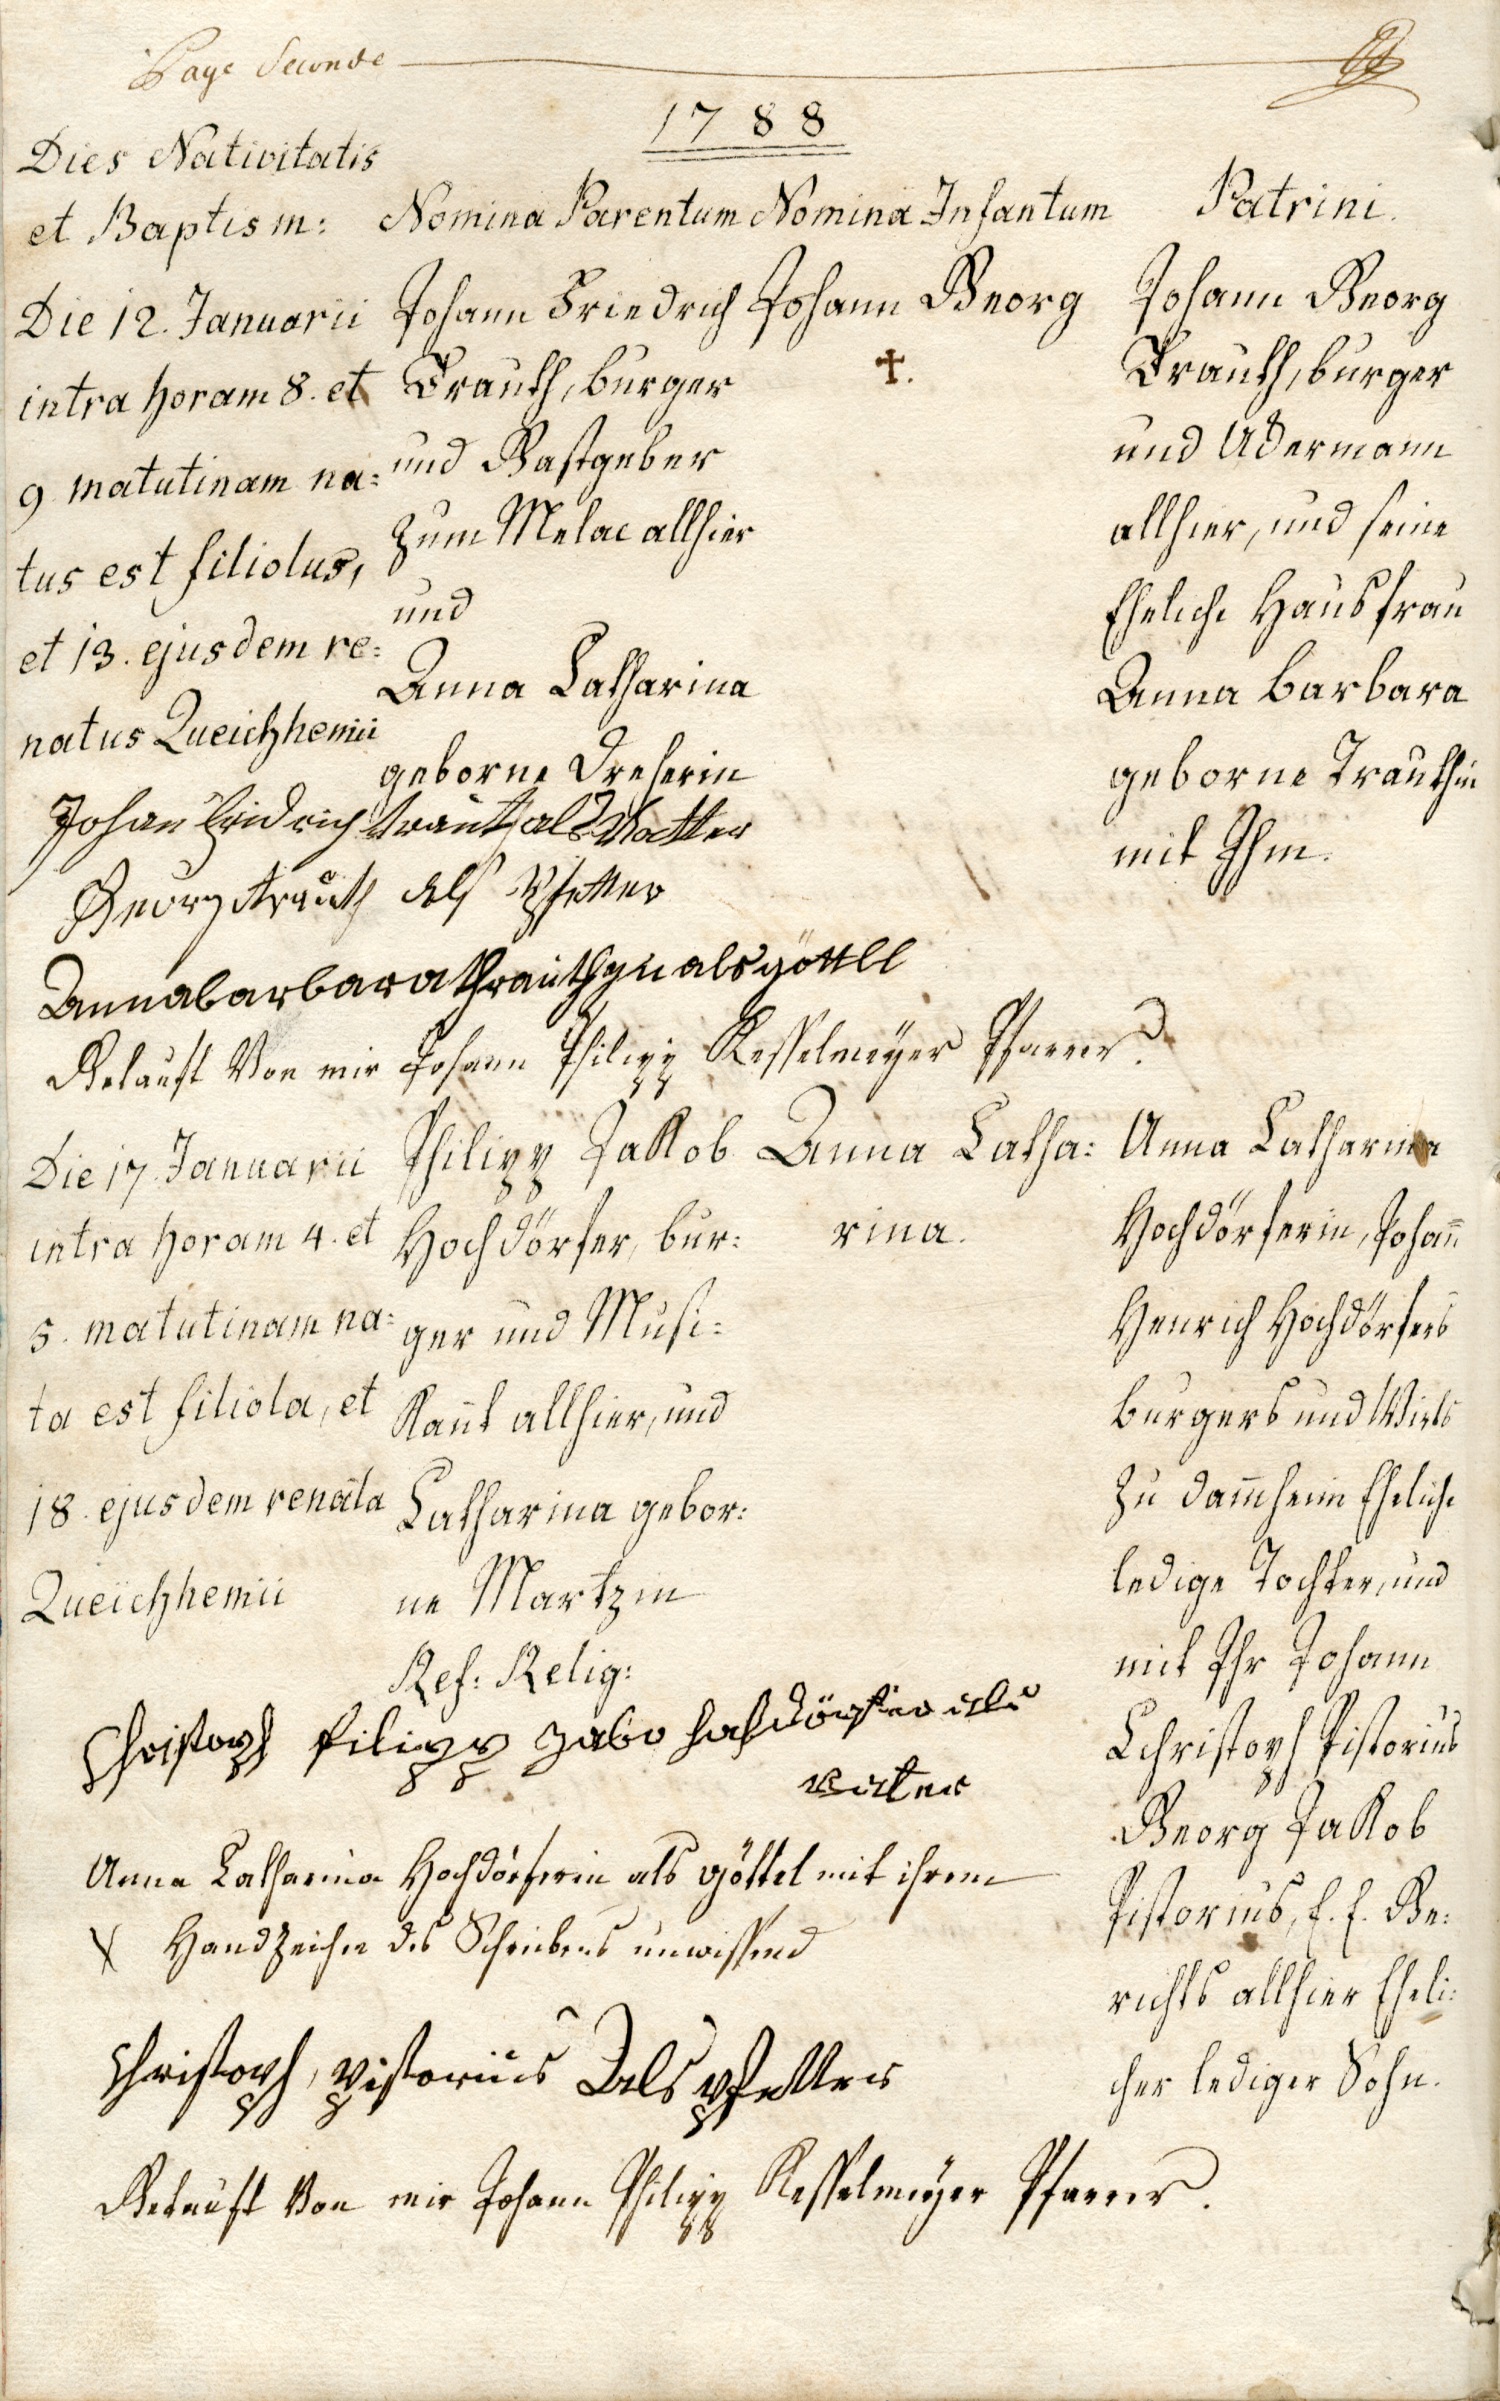 Page Seconde
1788
Dies Nativitatis
et Baptism:
Nomina Parentum
Nomina Infantum
Patrini.
Die 12. Januarii
intra horam 8. et
9 matutinam na:
tus est filiolus,
et 13. ejusdem re:
natus Queichhemii
Johann Friedrich
Trauth, burger
und Gastgeber
zum Melac allhier
und
Anna Catharina
geborne Dreherin
Johann Georg
†.
Johann Georg
Trauth, burger
und Ackermann
allhier, und seine
Eheliche Hausfrau
Anna barbara
geborne Trauthin
mit Ihm.
Johan Fridrich trauth als Vatter
Georg trauth als Pfetter
Annabarbara thrauthin als göttel
Getauft Von mir Johann Philipp Kesselmeyer Pfarrer.
Die 17. Januarii
intra horam 4. et
5. matutinam na:
ta est filiola, et
18. ejusdem renata
Queichhemii
Philipp Jakob
Hochdörfer, bur:
ger und Musi:
kant allhier, und
Catharina gebor:
ne Martzin
Ref: Relig:
Anna Catha:
rina.
Anna Catharina
Hochdörferin, Johann
Henrich Hochdörfers
burgers und Wirts
zu Dammheim Eheliche
ledige Tochter, und
mit Ihr Johann
Christoph Pistorius
Georg Jakob
Pistorius, E. E. Ge:
richts allhier Eheli:
cher lediger Sohn.
filipp Jabo hochdörfer als
vater
Anna Catharina Hochdörferin als Göttel mit ihrem
X Handzeichen des Schreibens unwissend
Christoph, pistorius Als pfetter
Getauft Von mir Johann Philipp Kesselmeyer Pfarrer.